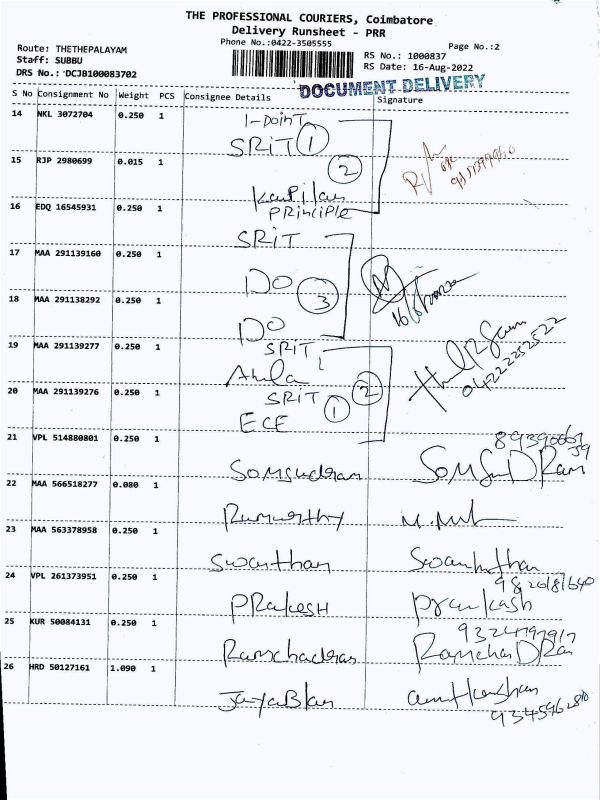 THE PROFESSIONAL COURIERS, Coimbatore
Delivery Runsheet - PRR
Phone No.:0422-3505555
Page No.:2
Route: THETHEPALAYAM
Staff: SUBBU
DRS No.: DCJB100083702
RS No.: 1000837
RS Date: 16-Aug-2022
DOCUMENT DELIVERY
S No Consignment No Weight PCS Consignee Details Signature
14 NKL 3072704 0.250 1
I-Point
SRIT 1
15 RJP 2980699 0.015 1
2
Kaupilan
16 EDQ 16545931 0.250 1
PRinciple
SRIT
17 MAA 291139160 0.250 1
DO 3
18 MAA 291138292 0.250 1
DO
19 MAA 291139277 0.250 1
SRIT
Akila 2
20 MAA 291139276 0.250 1
SRIT 1
ECE
04222252522
21 VPL 514880801 0.250 1
Somsudram
22 MAA 566518277 0.080 1
23 MAA 563378958 0.250 1
Swanthan
24 VPL 261373951 0.250 1
PRakesH prankash
25 KUR 50084131 0.250 1
Ramchadran
26 HRD 50127161 1.090 1
JayaBlan